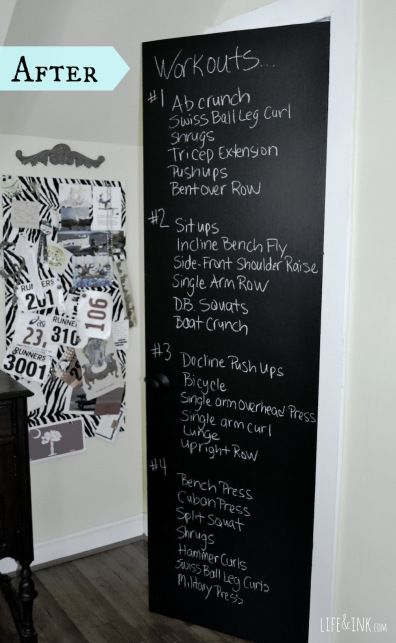 AFTER
Workouts...
#1 Ab crunch
Swiss Ball Leg Curl
Shrugs
Tricep Extension
Pushups
Bentover Row
#2 Situps
Incline Bench Fly
Side-Front Shoulder Raise
Single Arm Row
D.B. Squats
Boat Crunch
#3 Decline Push Ups
Bicycle
Single arm overhead Press
Single arm curl
Lunge
Upright Row
#4 Bench Press
Cuban Press
Split Squat
Shrugs
Hammer Curls
Swiss Ball Leg Curls
Military Press
RUNNERS
201
106
RUNNERS
23
310
RUNNERS
3001
LIFE&INK.COM